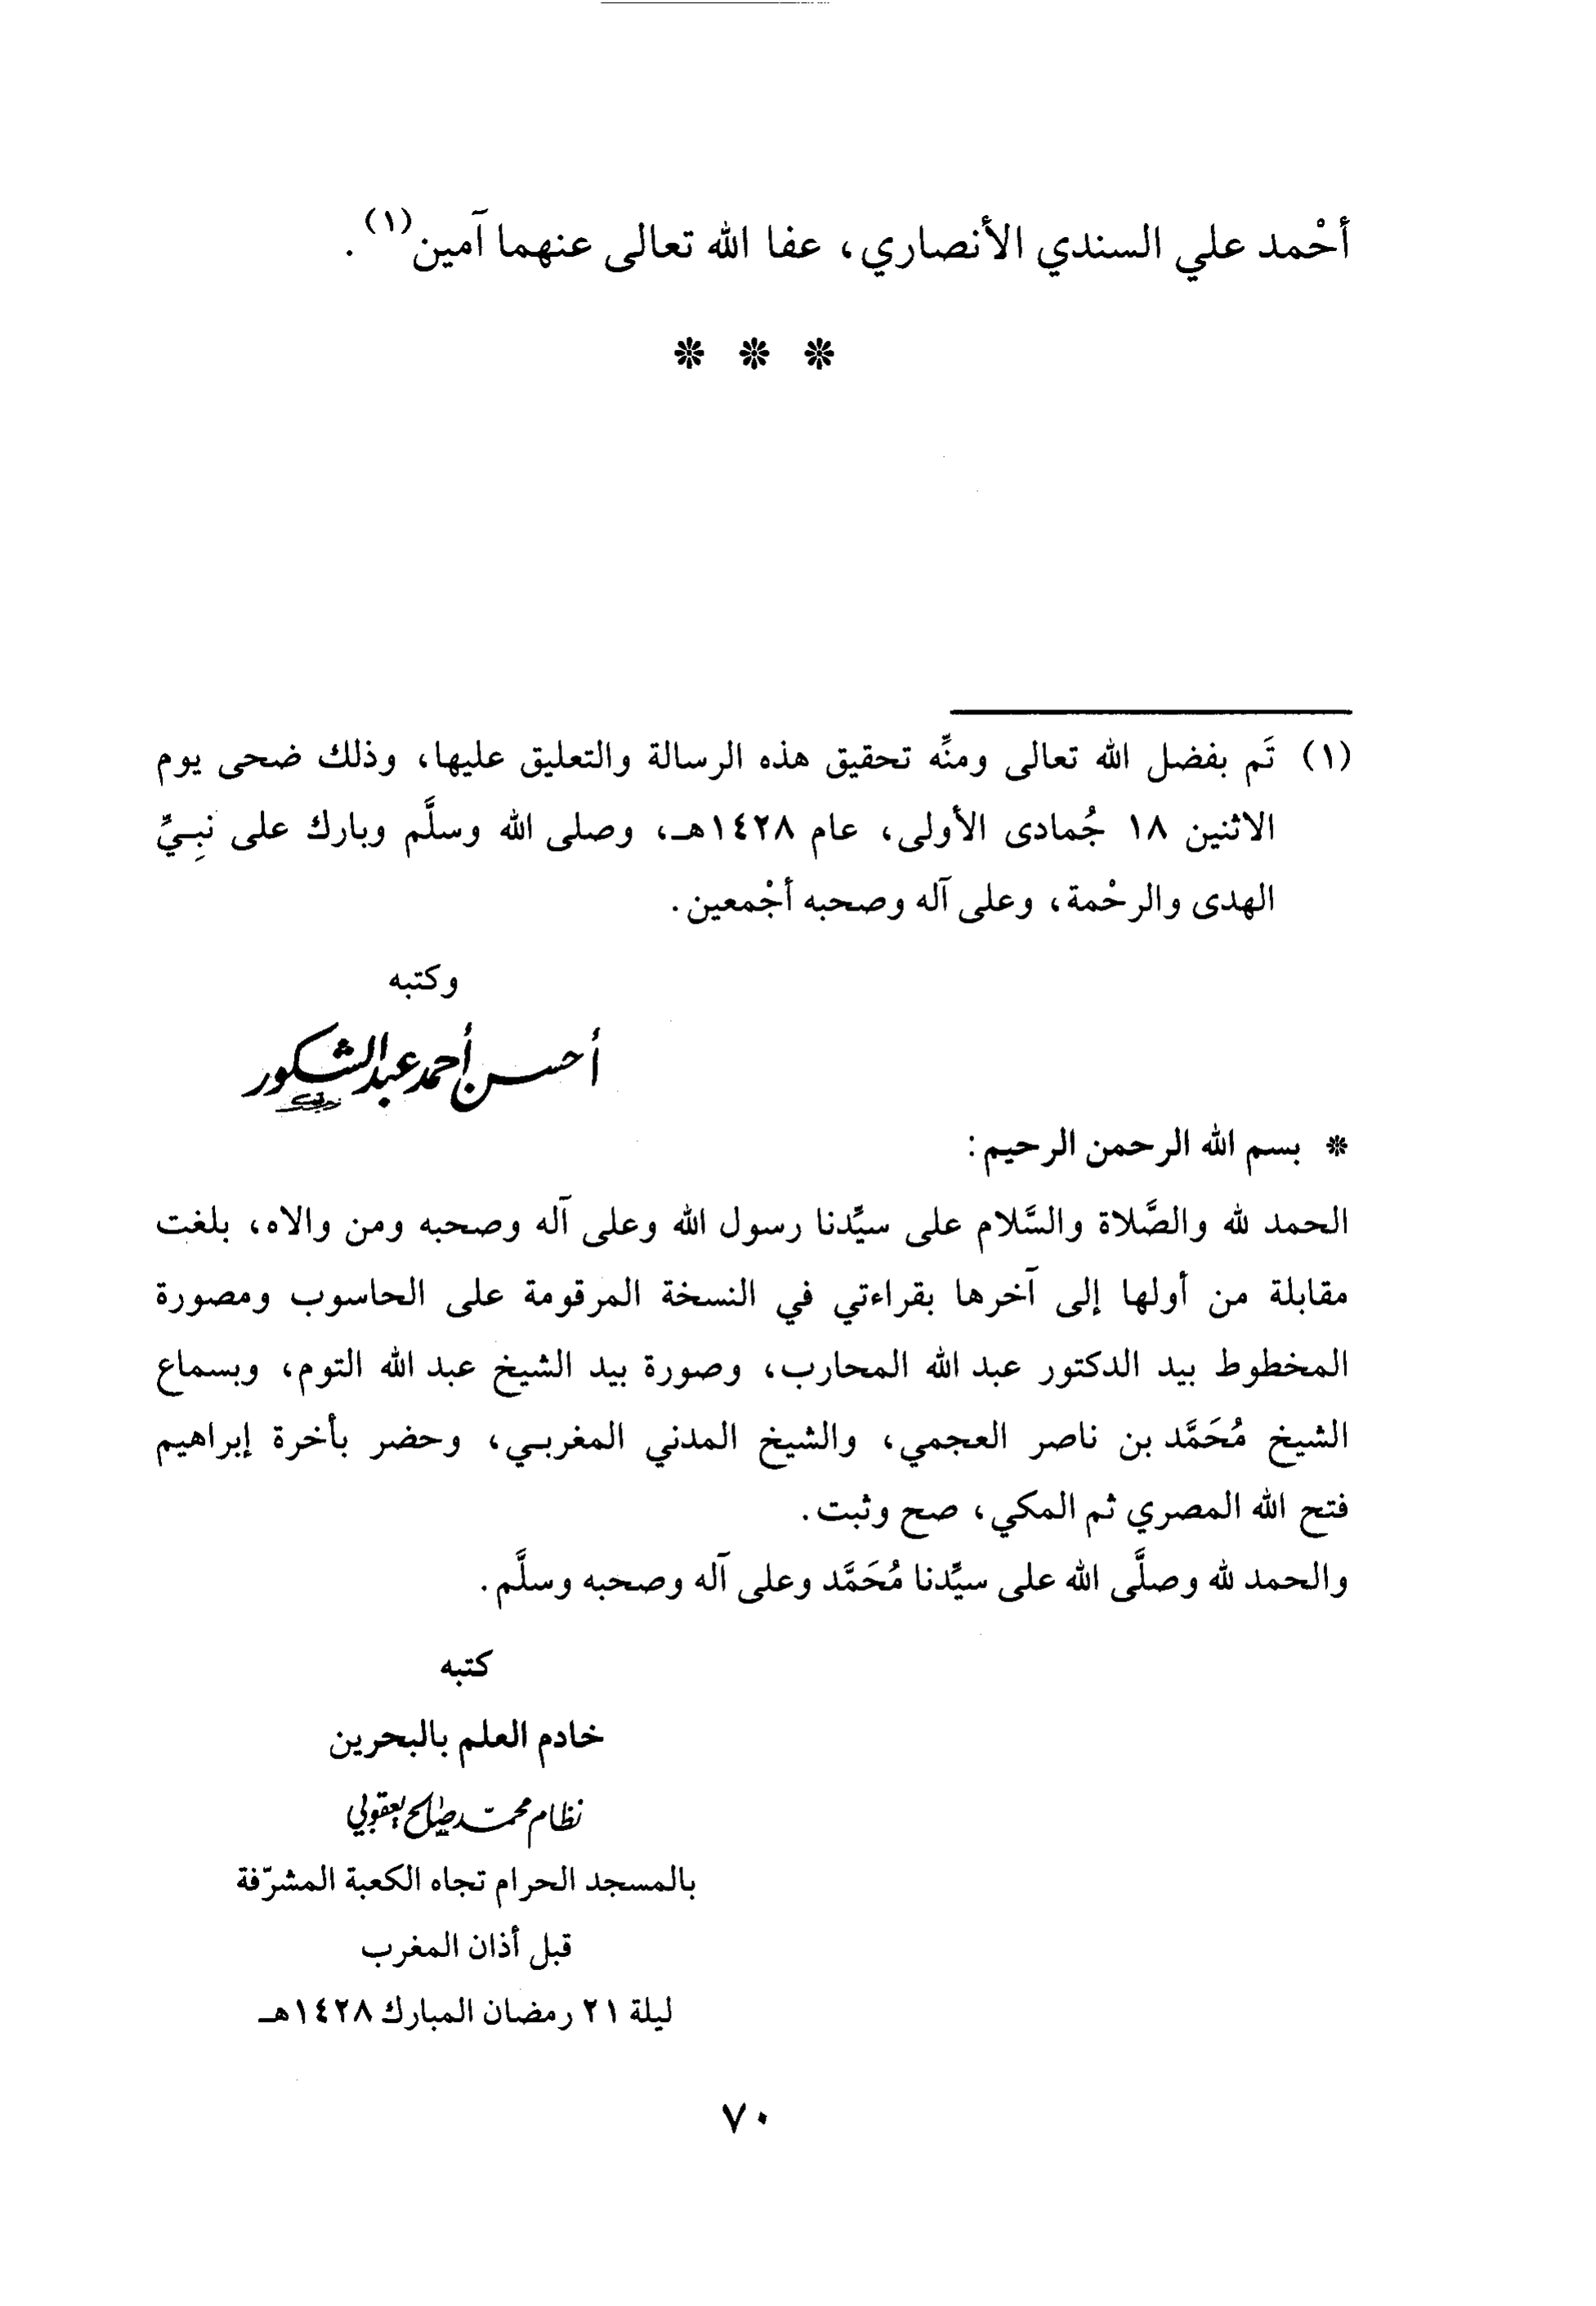 أحْمد علي السندي الأنصاري، عفا الله تعالى عنهما آمين(١).
❊ ❊ ❊
(١) تَم بفضل الله تعالى ومنِّه تحقيق هذه الرسالة والتعليق عليها، وذلك ضحى يوم
الاثنين ١٨ جُمادى الأولى، عام ١٤٢٨هـ، وصلى الله وسلَّم وبارك على نبِـيِّ
الهدى والرحْمة، وعلى آله وصحبه أجْمعين.
وكتبه
أحسن أحمد عبد الشكور
❊ بسم الله الرحمن الرحيم:
الحمد لله والصَّلاة والسَّلام على سيِّدنا رسول الله وعلى آله وصحبه ومن والاه، بلغت
مقابلة من أولها إلى آخرها بقراءتي في النسخة المرقومة على الحاسوب ومصورة
المخطوط بيد الدكتور عبد الله المحارب، وصورة بيد الشيخ عبد الله التوم، وبسماع
الشيخ مُحَمَّد بن ناصر العجمي، والشيخ المدني المغربـي، وحضر بأخرة إبراهيم
فتح الله المصري ثم المكي، صح وثبت.
والحمد لله وصلَّى الله على سيِّدنا مُحَمَّد وعلى آله وصحبه وسلَّم.
كتبه
خادم العلم بالبحرين
نظام محمّد صالح يعقوبي
بالمسجد الحرام تجاه الكعبة المشرّفة
قبل أذان المغرب
ليلة ٢١ رمضان المبارك ١٤٢٨هـ
٧٠